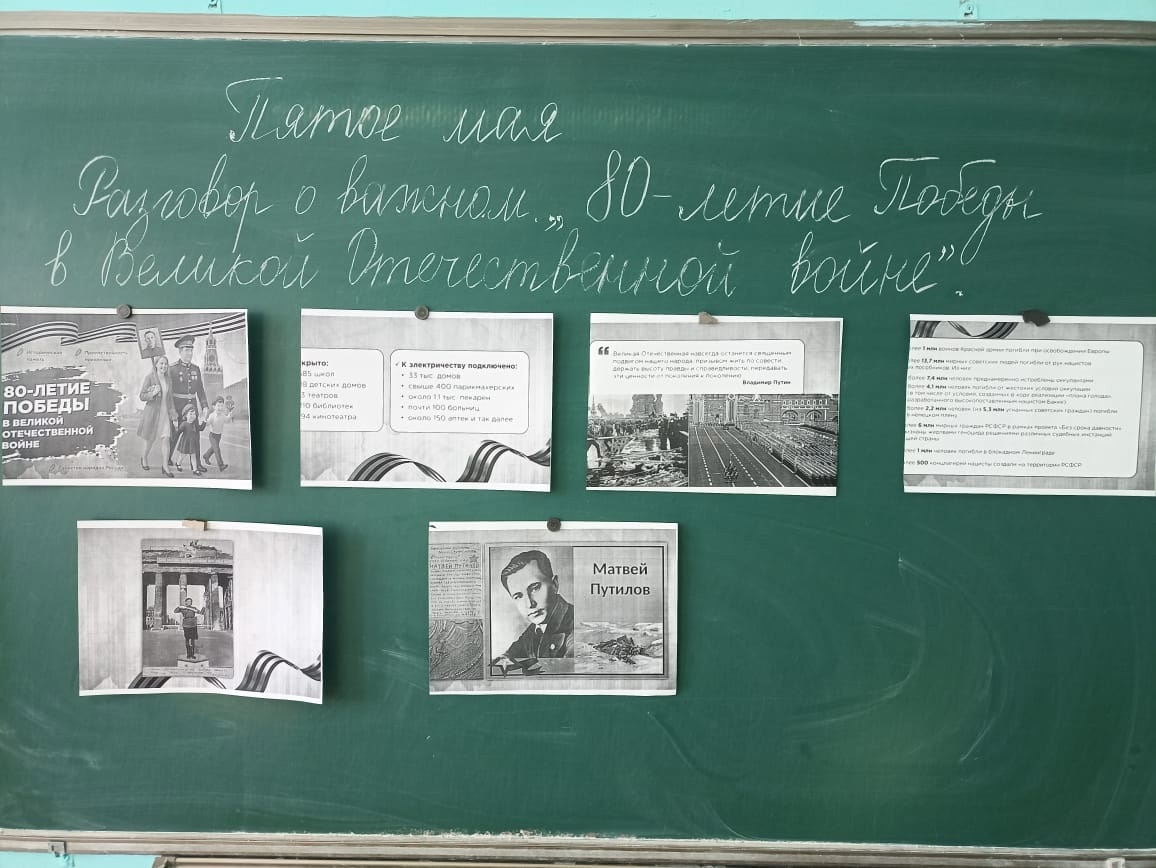 Пятое мая
Разговор о важном. „ 80-летие Победы
в Великой Отечественной войне".
Историческая
память
Преемственность
поколений
80-ЛЕТИЕ
ПОБЕДЫ
В ВЕЛИКОЙ
ОТЕЧЕСТВЕННОЙ
ВОЙНЕ
Единство народов России
крыто:
85 школ
8 детских домов
3 театров
10 библиотек
94 кинотеатра
✓ К электричеству подключено:
• 33 тыс. домов
• свыше 400 парикмахерских
• около 1,1 тыс. пекарен
• почти 100 больниц
• около 150 аптек и так далее
Великая Отечественная навсегда останется священным
подвигом нашего народа, призывом жить по совести,
держать высоту правды и справедливости, передавать
эти ценности от поколения к поколению.
Владимир Путин
лее 1 млн воинов Красной армии погибли при освобождении Европы
лее 13,7 млн мирных советских людей погибли от рук нацистов
их пособников. Из них:
более 7,4 млн человек преднамеренно истреблены оккупантами
более 4,1 млн человек погибли от жестоких условий оккупации
(в том числе от условий, созданных в ходе реализации «плана голода»,
разработанного высокопоставленным нацистом Бакке)
более 2,2 млн человек (из 5,3 млн угнанных советских граждан) погибли
в немецком плену
лее 6 млн мирных граждан РСФСР в рамках проекта «Без срока давности»
изнаны жертвами геноцида решениями различных судебных инстанций
шей страны
лее 1 млн человек погибли в блокадном Ленинграде
лее 500 концлагерей нацисты создали на территории РСФСР
МАТВЕЙ ПУТИЛОВ
Матвей
Путилов